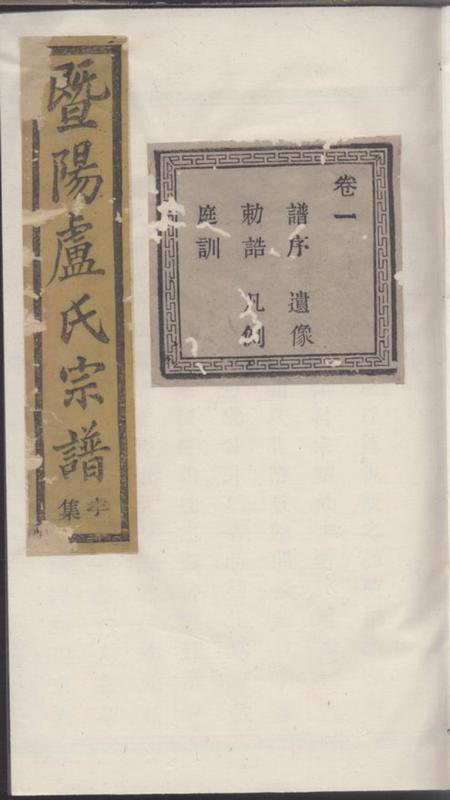 卷一
譜序 遺像
勅誥 凡例
庭訓
暨陽盧氏宗譜
孝集